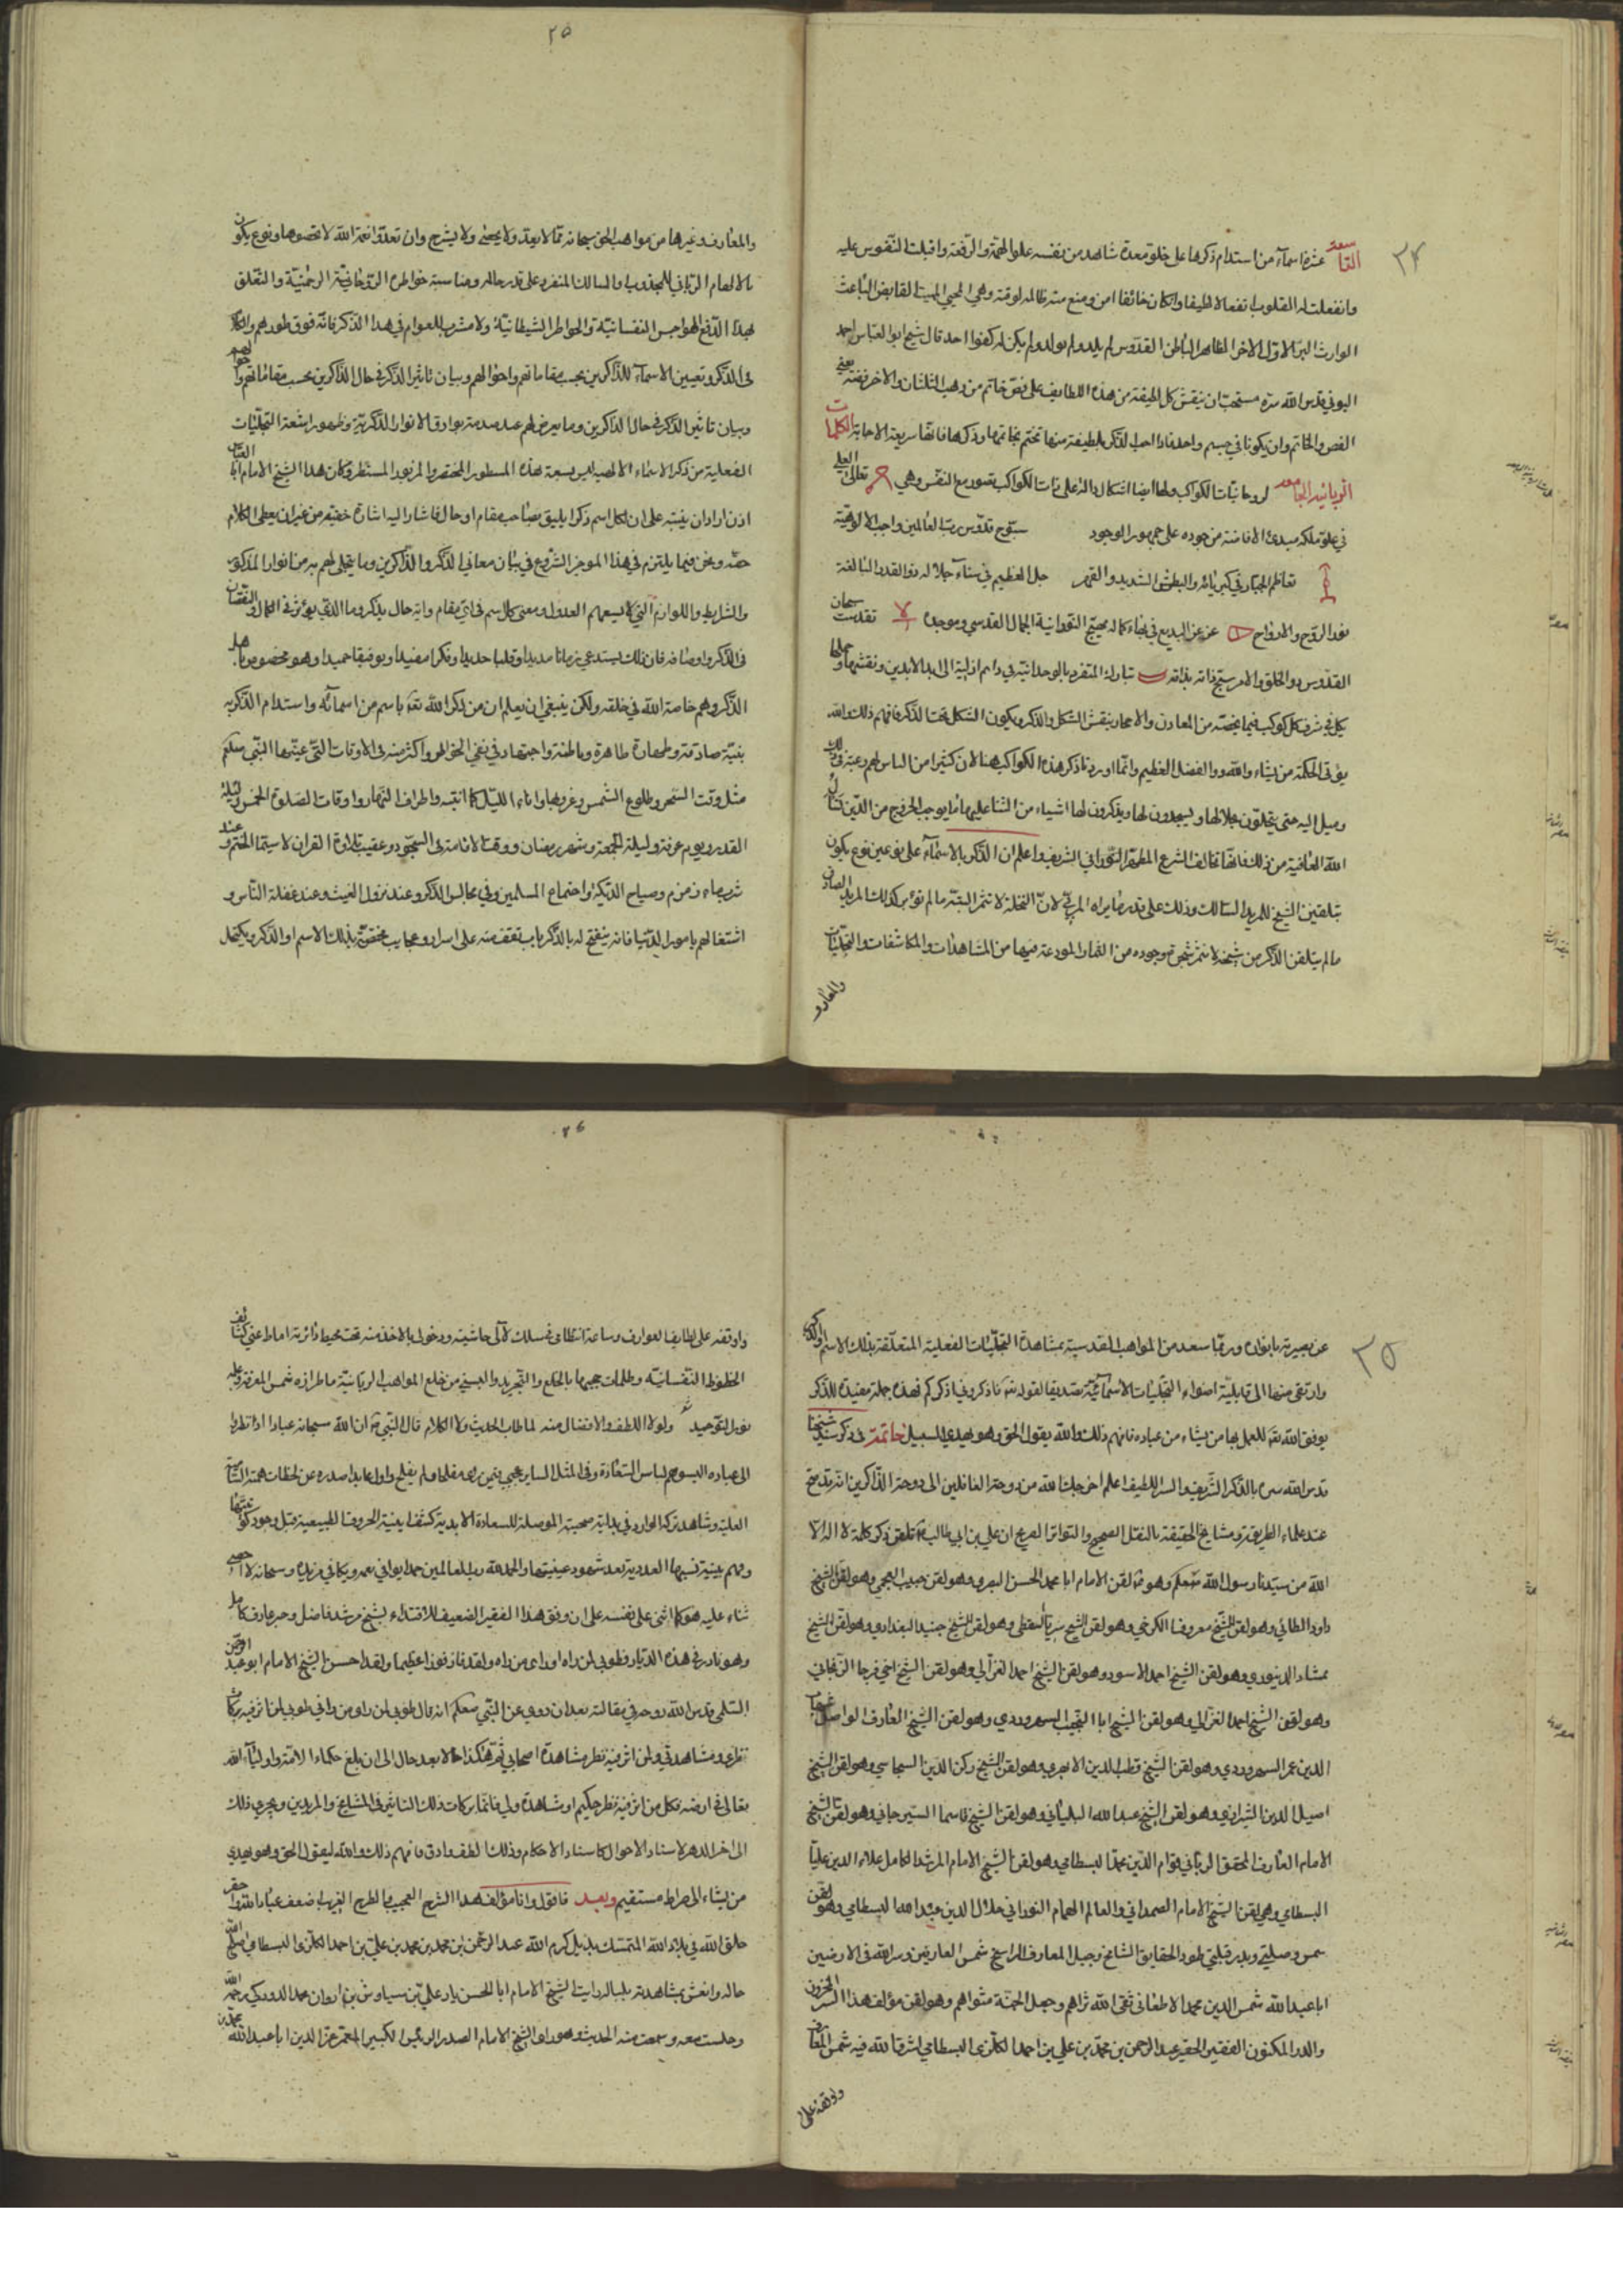 ٢٤
التاسعة عشرة اسماء من استدام ذكرها على خلوة معدة شاهد من نفسه علو الهمة والرفعة واقبلت النفوس عليه
وانفعلت له القلوب انفعالا لطيفا وان كان خائفا امن ومنع منه ظالمه لوقته وهي المحيي المميت القابض الباعث
الوارث البر الاول الاخر الظاهر الباطن القدوس لم يلد ولم يولد ولم يكن له كفوا احد قال شيخ ابو العباس احمد
البوني قدس الله سره مستحب ان ينقش كل لطيفة من هذه اللطايف على فص خاتم من ذهب الثلثان والاخر فضة يعني
الفص والخاتم وان يكونا في جسم واحد فاذا احب الذكر بلطيفة منها تختم بخاتمها وذكرها فانها سريعة الاجابة الكلمات
الربانية الجامعة لروحانيات الكواكب ولها ايضا اشكال دالة على ذات الكواكب تصور مع النقش وهي تعالى العلي
في علو ملكه مبدئ الافاضة من جوده على جمهور الوجود سبوح قدوس رب العالمين واجب الالوهية
تعاظم الجبار في كبريائه والبطش الشديد والقهر جل العظيم في سناء جلاله ذو القدرة البالغة
نور الروح والارواح عز عن البديع في بهاء كماله مهيج النورانية الجمال القدسي وموجده تقدست سبحان
القدوس ذو الخلق والامر سبح ذاته بذاته تبارك المتفرد بالوحدانية في دائم ازلية الى ابد الابدين ونقشها وحملها
يكل في شرف كل كوكب فيما يخصه من المعادن والاحجار ينقش الشكل والذكر ويكون الشكل تحت الذكر فافهم ذلك والله
يؤتي الحكمة من يشاء والله ذو الفضل العظيم وانما اوردنا ذكر هذه الكواكب هنا لان كثيرا من الناس لهم رغبة في ذلك
وميل اليه حتى يتعلقون بجلالها ويسجدون لها ويذكرون لها اشياء من الثنا عليها مما يوجب الخروج من الدين نسأل
الله العافية من ذلك فانها تخالف الشرع المطهر النوراني الشريف واعلم ان الذكر بالاسماء على نوعين نوع يكون
بتلقين الشيخ للمريد السالك وذلك على قدر ما يراه المربي لان النخلة لا تثمر البتة ما لم تؤبر كذلك المريد الصادق
ما لم يتلقن الذكر من شيخه لا تثمر شجرة وجوده من الثمار المودعة فيها من المشاهدات والمكاشفات والتجليات
والمعارف
٢٥
والمعارف وغيرها من مواهب الحق سبحانه مما لا يعد ولا يحصى ولا يشرح وان تعدوا نعمة الله لا تحصوها ونوع يكون
بالالهام الرباني للمجذوب والسالك المنفرد على قدر حاله ومناسبة خواطره الروحانية الرحمنية والتعلق
بهذا الدفع الهواجس النفسانية والخواطر الشيطانية ولا مشرب للعوام في هذا الذكر فانه فوق طورهم والكلام
في الذكر وتعيين الاسماء للذاكرين بحسب مقاماتهم واحوالهم وبيان تاثير الذكر في حال الذاكرين بحسب مقاماتهم واحوالهم
وبيان تاثير الذكر في حال الذاكرين وما يعرض لهم عند صدمة بوارق الانوار الذكرية وظهور اشعة التجليات
الفعلية من ذكر الاسماء الالهية ليس يسعة هذه المسطور المختصر والمزبور المستطر وكان هذا الشيخ الامام ابا العباس
اذن اراد ان ينبه على ان لكل اسم ذكرا يليق بصاحب مقام او حال فاشار اليه اشارة خفية من غير ان يعطي الكلام
حقه ونحن فيما يلتزم في هذا الموجز الشروع في بيان معاني الذكر والذاكرين وما يتجلى لهم به من انوار المذكور
والشرايط واللوازم التي لا يسعهم العدول ومعنى كل اسم في اي مقام واية حال يذكر وما الذي يؤثر في الكمال والنقصان
في الذكر واوصافه فان ذلك يستدعي زمانا مديدا وقلبا حديدا وفكرا مفيدا وتوفيقا حميدا وهو مخصوص باهل
الذكر وهم خاصة الله في خلقه ولكن ينبغي ان يعلم ان من ذكر الله تعه باسم من اسمائه واستدام الذكر به
بنية صادقة وطهارة ظاهرة وباطنة واجتهاد في نفي الخواطر واكثر منه في الاوقات التي عينها النبي صلعم
مثل وقت السحر وطلوع الشمس وغروبها واناء الليل كما انتبه واطراف النهار واوقات الصلوة الخمس وليلة
القدر ويوم عرفة وليلة الجمعة وشهر رمضان ووقت الاقامة في السجود وعقيب تلاوة القران لاسيما الختم وعند
شرب ماء زمزم وصياح الديكة واجتماع المسلمين وفي مجالس الذكر وعند نزول الغيث وعند غفلة الناس و
اشتغالهم بامور الدنيا فانه ينفتح له بالذكر باب تقف منه على اسرار وعجايب مختصة بذلك الاسم او الذكر ويكتحل
٢٥
عن بصيرته بانواره وربما سعد من المواهب المقدسية بمشاهدة التجليات الفعلية المتعلقة بذلك الاسم او الذكر
وارتقى منها الى قابلية اضواء التجليات الاسمائية تصديقا لقوله تعه فاذكروني اذكركم فهذه جملة مفيدة للذكر
يوفق الله تعه للعمل بها من يشاء من عباده فافهم ذلك والله يقول الحق وهو يهدي السبيل خاتمة في ذكر سند شيخنا
قدس الله سره بالذكر الشريف والسر اللطيف اعلم اخرجك الله من دوحة الغافلين الى دوحة الذاكرين انه قد صح
عند علماء الطريقة ومشايخ الحقيقة بالنقل الصحيح والتواتر الصريح ان علي بن ابي طالب تلقن ذكر كلمة لا اله الا
الله من سيدنا رسول الله صلعم وهو لقن الامام ابا محمد الحسن البصري وهو لقن حبيب العجمي وهو لقن الشيخ
داود الطائي وهو لقن الشيخ معروف الكرخي وهو لقن الشيخ سريا السقطي وهو لقن الشيخ جنيد البغدادي وهو لقن الشيخ
ممشاد الدينوري وهو لقن الشيخ احمد الاسود وهو لقن الشيخ احمد الغزالي وهو لقن الشيخ اخي فرجا الزنجاني
وهو لقن الشيخ احمد الغزالي وهو لقن الشيخ ابا النجيب السهروردي وهو لقن الشيخ العارف الواصل شهاب
الدين عمر السهروردي وهو لقن الشيخ قطب الدين الابهري وهو لقن الشيخ ركن الدين السجاسي وهو لقن الشيخ
اصيل الدين الشيرازي وهو لقن الشيخ عبد الله البلياني وهو لقن الشيخ قاسما السيرجاني وهو لقن الشيخ
الامام العارف المحقق الرباني قوام الدين محمد البسطامي وهو لقن الشيخ الامام المرشد الكامل علاء الدين عليا
البسطامي وهو لقن الشيخ الامام الصمداني والعالم الهمام النوراني جلال الدين عبد الله البسطامي وهو لقن
شمس وصلتي وبدر قبلتي طود الحقايق الشامخ وجبل المعارف الراسخ شمس العارفين وسر الله في الارضين
ابا عبد الله شمس الدين محمد الاطعاني سقى الله ثراهم وجعل الجنة مثواهم وهو لقن مؤلف هذا السر المخزون
والدر المكنون الفقير الحقير عبد الرحمن بن محمد بن علي بن احمد البسطامي اشرق الله فيه شمس المعارف
واوقفه على
٢٦
واوقفه على لطايف العوارف وساعة انتظامي في سلك لآلي حاشيته ودخولي بالاخذ منه تحت محيط دائرته اماط عني كثائف
الحظوظ النفسانية وظلمات حجبها بالخلع والتجريد والبسني من خلع المواهب الربانية ما طرازه شمس المعرفة وعلمه
نور التوحيد ولولا اللطف والافضال منه لما طاب الحديث ولا الكلام قال النبي ان الله سبحانه عبادا اذا نظروا
الى عباده البسوهم لباس السعادة وفي المثل الساير عجبي بمن يرى مفلحا ولم يفلح واول ما بدا صدره عن لحظات همته السامية
العلية وشاهد تركة الوارد في بداية صحبته الموصلة للسعادة الابدية كشف ابنية الحروف الطبيعية قبل وجود كونيتها
وفهم بينية نسبها العددية بعد شهود عينيتها والحمد لله رب العالمين حمدا يوافي نعمه ويكافي مزيده وسبحانه لا احصي
ثناء عليه هو كما اثنى على نفسه على ان وفق هذا الفقير الضعيف للاقتداء بشيخ مرشد فاضل وحبر عارف كامل
وهو نادر في هذه الديار وطوبى لمن راه او راى من راه ولقد فاز فوزا عظيما ولقد احسن الشيخ الامام ابو عبد الرحمن
السلمي قدس الله روحه في مقالته بعد ان روى عن النبي صلعم انه قال طوبى لمن راني ومن راني طوبى لمن اثر فيه بركات
نظري ومشاهدتي ولمن اثر فيه نظر مشاهدة اصحابي ثم هكذا حالا بعد حال الى ان بلغ حكماء الامة واولياء الله
تعالى في ارضه فكل من اثر فيه نظر حكيم او شاهده ولي فانما بركات ذلك التاثير في المشايخ والمريدين ويجري ذلك
الى اخر الدهر لاسناد الاحوال كاسناد الاحكام وذلك الطف وادق فافهم ذلك والله ليقول الحق وهو يهدي
من يشاء الى صراط مستقيم وبعد فاقول وانا مؤلف هذا الشرح العجيب والطرح الغريب اضعف عباد الله واحقر
خلق الله في بلاد الله المتمسك بذيل كرم الله عبد الرحمن بن محمد بن علي بن احمد البسطامي اصلح الله
حاله وانعش بمشاهدته بلباله رايت الشيخ الامام ابا الحسن يار علي بن سياوش بن محمد رحمه الله
وجلست معه وسمعت منه الحديث وهو راى الشيخ الامام الصدر الرئيس الكبير المعمر عز الدين ابا عبد الله محمد بن